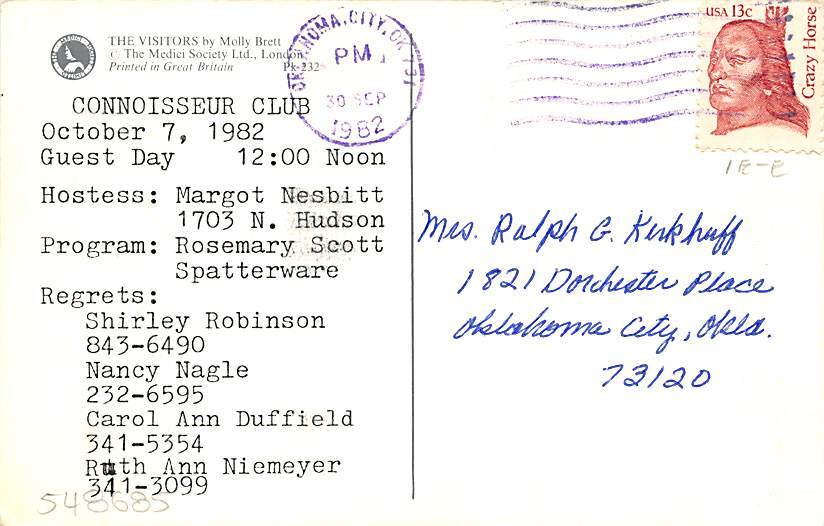 THE VISITORS by Molly Brett
© The Medici Society Ltd., London.
Printed in Great Britain Pk-232
CONNOISSEUR CLUB
October 7, 1982
Guest Day 12:00 Noon
Hostess: Margot Nesbitt
1703 N. Hudson
Program: Rosemary Scott
Spatterware
Regrets:
Shirley Robinson
843-6490
Nancy Nagle
232-6595
Carol Ann Duffield
341-5354
Ruth Ann Niemeyer
341-3099
548685
OKLAHOMA CITY, OK 731
PM
30 SEP
1982
USA 13c
Crazy Horse
1E-E
Mrs. Ralph G. Kirkhuff
1821 Dorchester Place
Oklahoma City, Okla.
73120